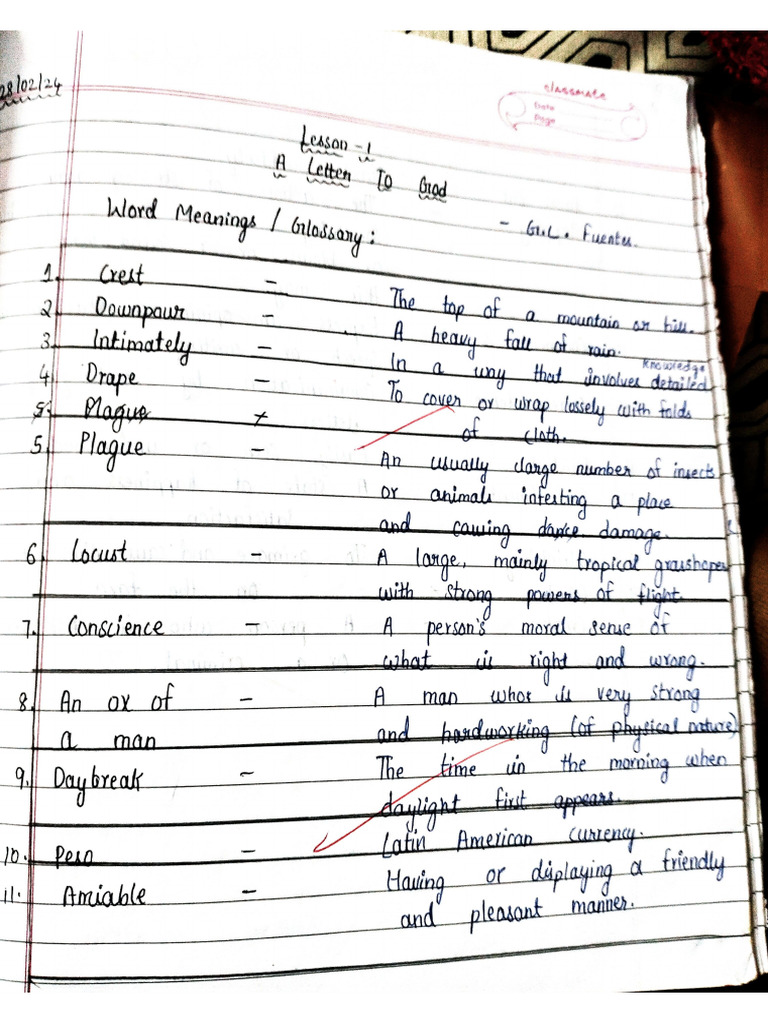 28/02/24
classmate
Date
Page
Lesson - 1
A Letter To God
- G.L. Fuentes.
Word Meanings / Glossary :
1. Crest - The top of a mountain or hill.
2. Downpour - A heavy fall of rain.
3. Intimately - In a way that involves detailed knowledge
4. Drape - To cover or wrap lossely with folds
of cloth.
5. Plague x
5. Plague - An usually large number of insects
or animals infesting a place
and causing dance damage.
6. Locust - A large, mainly tropical grasshoper
with strong powers of flight
7. Conscience - A person's moral sense of
what is right and wrong.
8. An ox of - A man whos is very strong
a man and hardworking (of physical nature)
9. Daybreak - The time in the morning when
daylight first appears.
10. Peso - Latin American currency.
11. Amiable - Having or displaying a friendly
and pleasant manner.